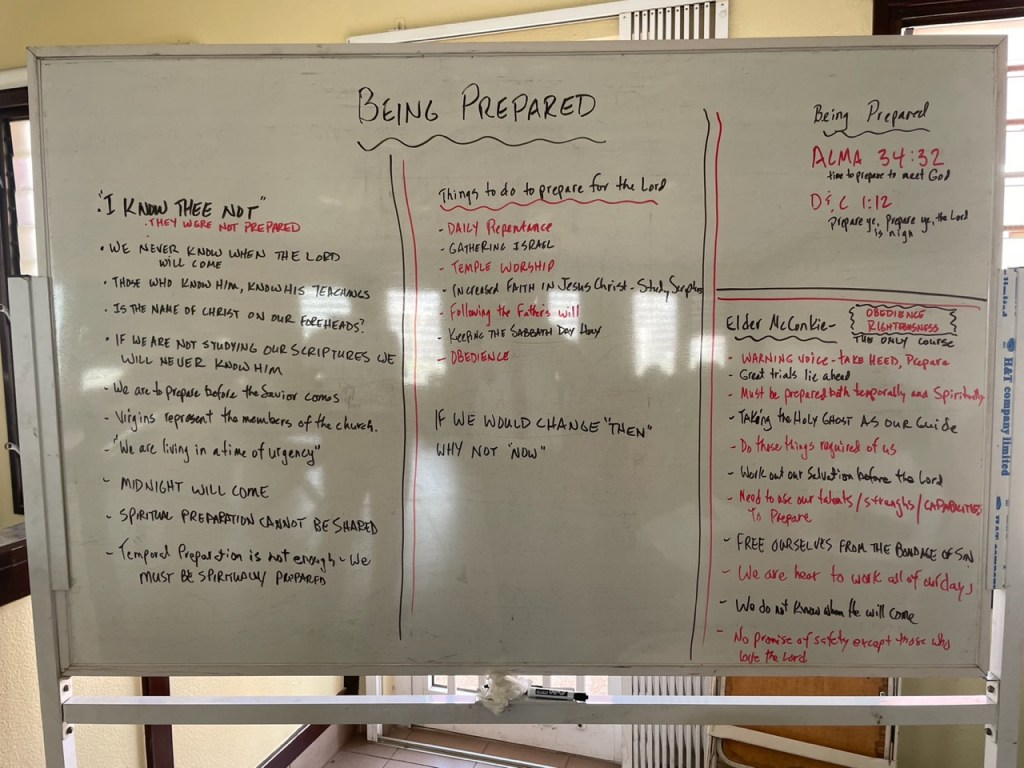 BEING PREPARED
"I KNOW THEE NOT"
. THEY WERE NOT PREPARED
• WE NEVER KNOW WHEN THE LORD
WILL COME
• THOSE WHO KNOW HIM, KNOW HIS TEACHINGS
• IS THE NAME OF CHRIST ON OUR FOREHEADS?
• IF WE ARE NOT STUDYING OUR SCRIPTURES WE
WILL NEVER KNOW HIM
- We are to prepare before the Savior comes
- Virgins represent the members of the church.
- "We are living in a time of urgency"
- MIDNIGHT WILL COME
- SPIRITUAL PREPARATION CANNOT BE SHARED
- Temporal Preparation is not enough - We
MUST BE SPIRITUALLY PREPARED
Things to do to prepare for the Lord
- DAILY Repentance
- GATHERING ISRAEL
- TEMPLE WORSHIP
- INCREASED FAITH IN JESUS CHRIST - Study Scriptures
- Following the Fathers will
- Keeping THE SABBATH DAY HOLY
- OBEDIENCE
IF WE WOULD CHANGE "THEN"
WHY NOT "NOW"
Being Prepared
ALMA 34:32
time to prepare to meet God
D&C 1:12
prepare ye, prepare ye, the Lord
is nigh
Elder McConkie -
OBEDIENCE
RIGHTEOUSNESS
THE ONLY COURSE
- WARNING VOICE - TAKE HEED, Prepare
- Great trials lie ahead
- Must be prepared both temporally and Spiritually
- Taking the Holy Ghost AS OUR GUIDE
- Do those things required of us
- Work out our Salvation before the Lord
- Need to use our talents/strenghs/CAPABILITIES
To Prepare
- FREE OURSELVES FROM THE BONDAGE OF SIN
- We are hear to work all of our days
- We do not know when He will come
- No promise of safety except those who
love the Lord
H&T company limited